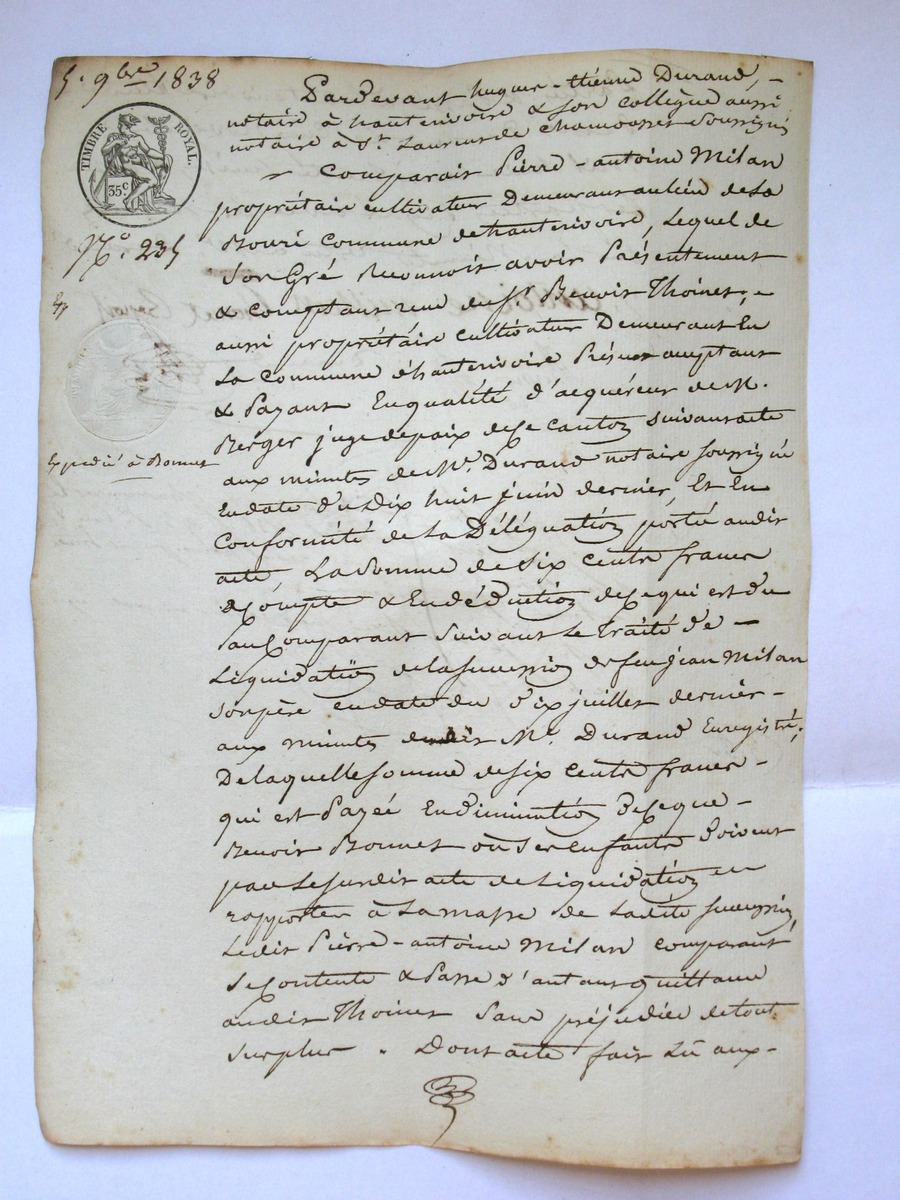 5. 9bre 1838
TIMBRE ROYAL.
35c.
N° 235
Expédié à Bonnet
Pardevant hugues-Étienne Durand,-
notaire à hauterivoire & son collègue aussi
notaire à St. Laurent de Chamousset Soussignés
Comparait Pierre-antoine Milan
propriétaire cultivateur Demeurant au lieu de La
commune de hauterivoire, Lequel de
Son Gré Reconnoit avoir Présentement
& Comptant reçu de Sr. Benoit Thoinet,
aussi propriétaire cultivateur Demeurant En
La Commune d'hauterivoire Présent acceptant
& Payant En qualité d'acquéreur de M.
Berger juge de paix de Ce canton suivant acte
aux minutes de Me. Durand notaire soussigné
En date d'u Dix huit juin dernier, Et En
Conformité de La Délégation portée audit
acte, La Somme de Six cents francs
à Compte & En déduction de Ce qui est dû
au Comparant Suivant Le Traité de-
Liquidation de la succession de feu jean Milan
Son père en date du dix juillet dernier-
aux minutes dudit Me. Durand Enregistré;
De laquelle somme de six cents francs-
qui est Payée En diminution de Ce que-
Benoit Bonnet ou Ses enfants doivent
par Le susdit acte de Liquidation en
rapporter à La masse de Ladite succession,
Ledit Pierre-antoine Milan comparant
Se Contente & Passe d'autant quittance
audit Thoinet Sans préjudice de tout
Surplus. Dont acte fait Lû aux-